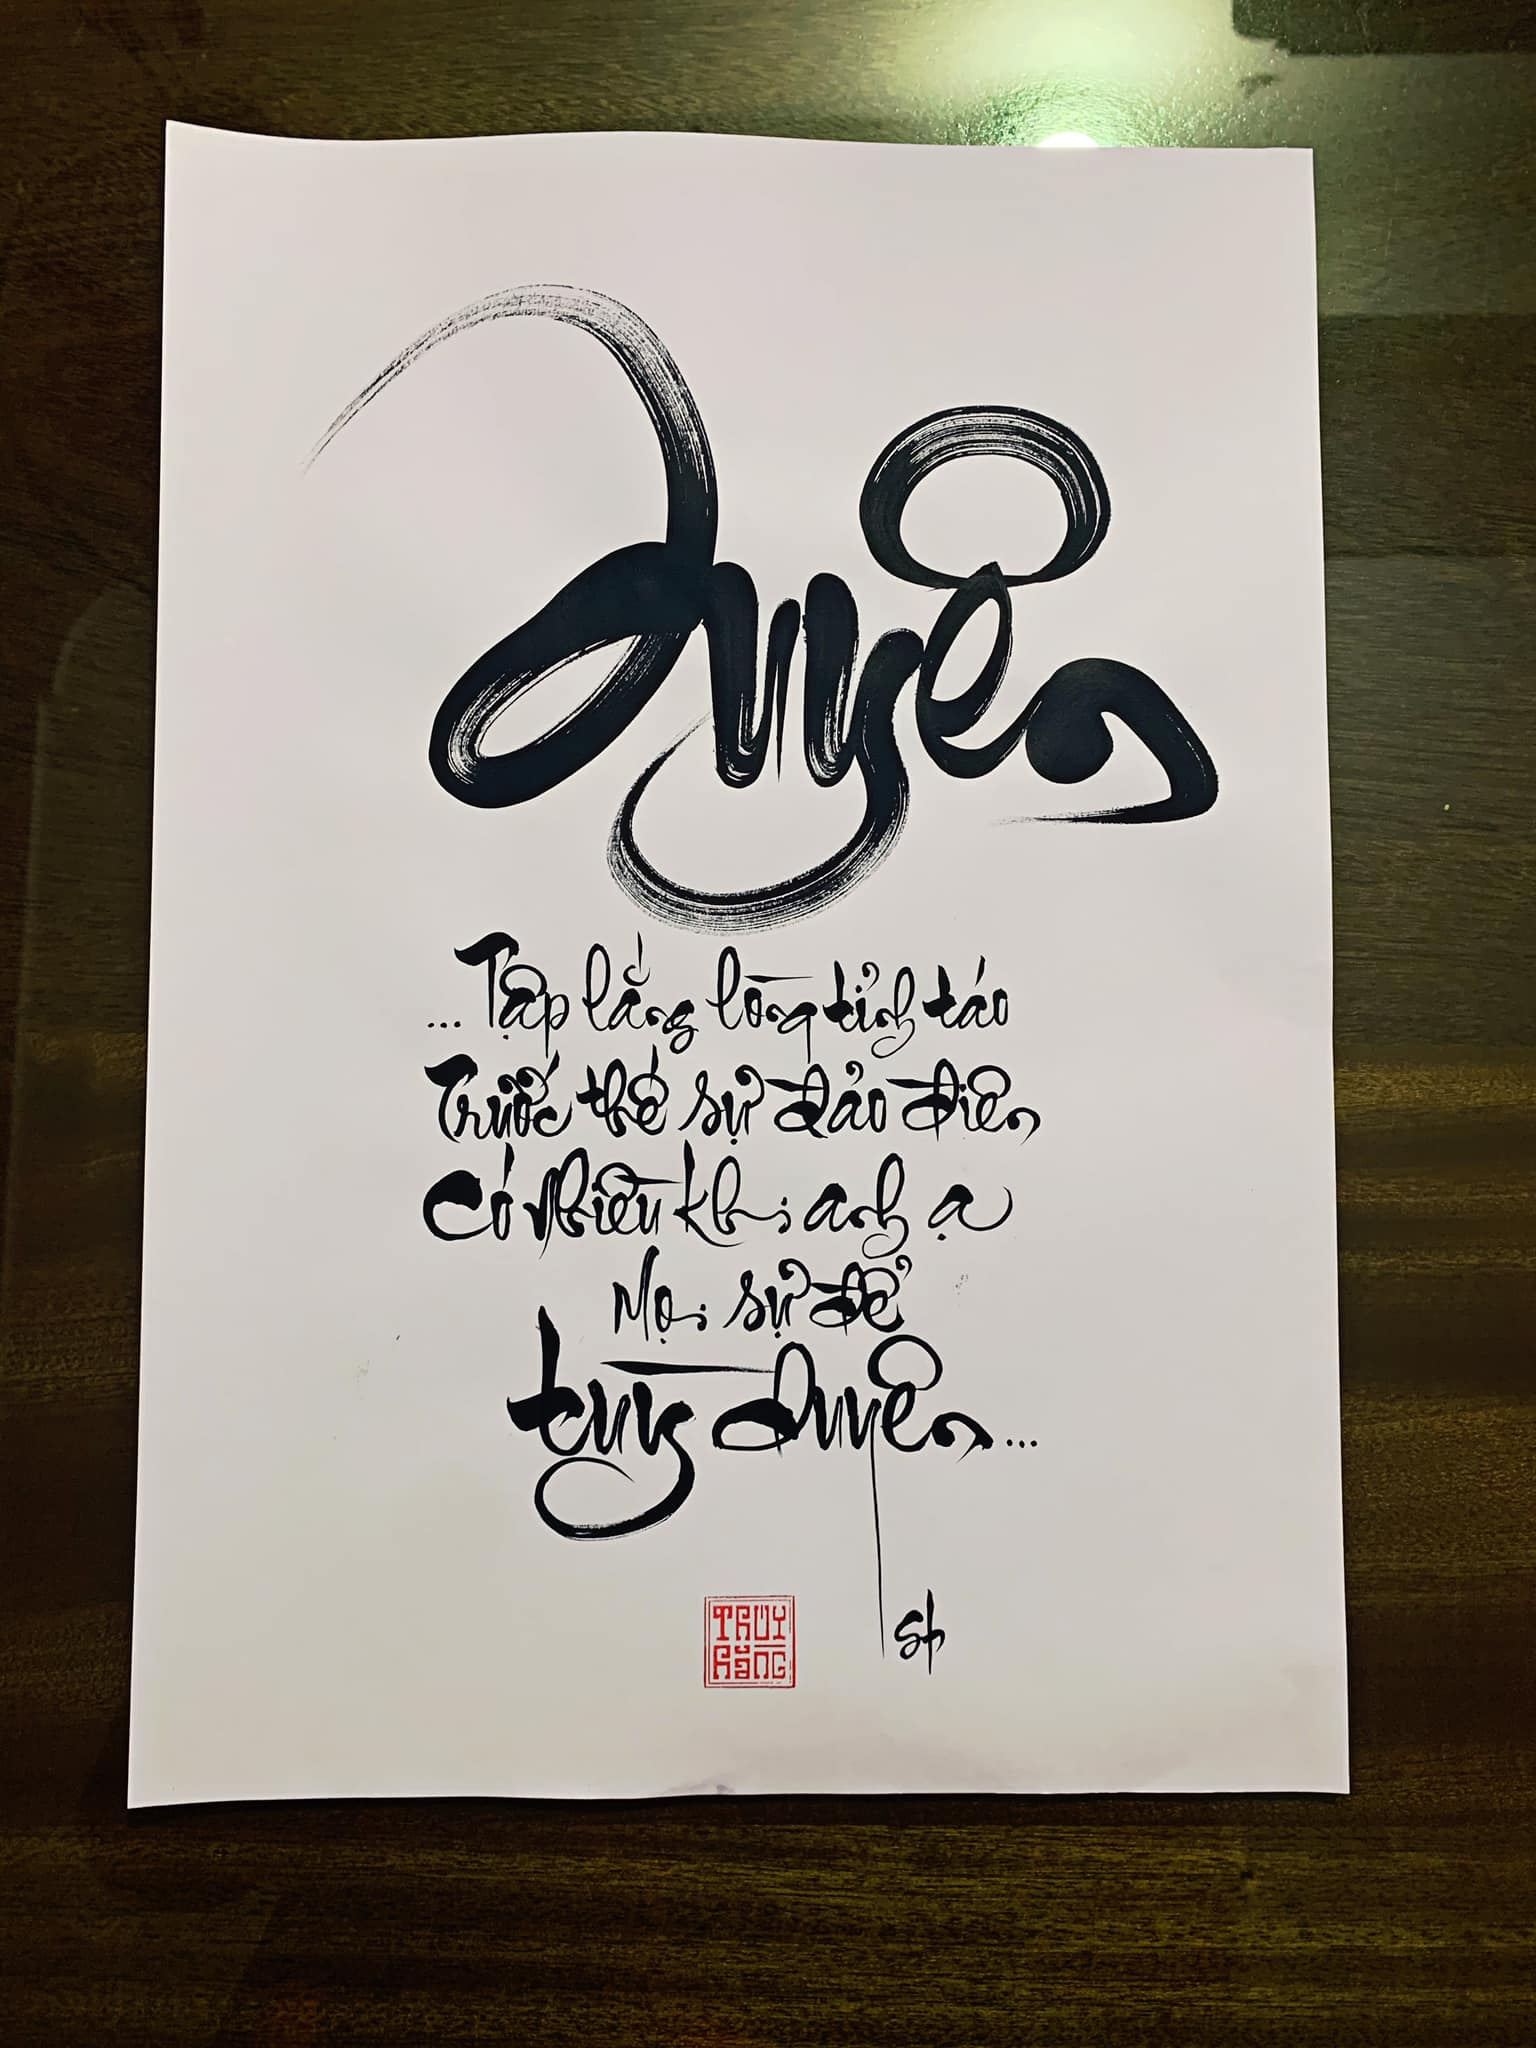 Duyên
... Tập lắng lòng tỉnh táo
Trước thế sự đảo điên
Có nhiều khi anh ạ
Mọi sự để
tùy duyên...
Sh
THUY
HẰNG